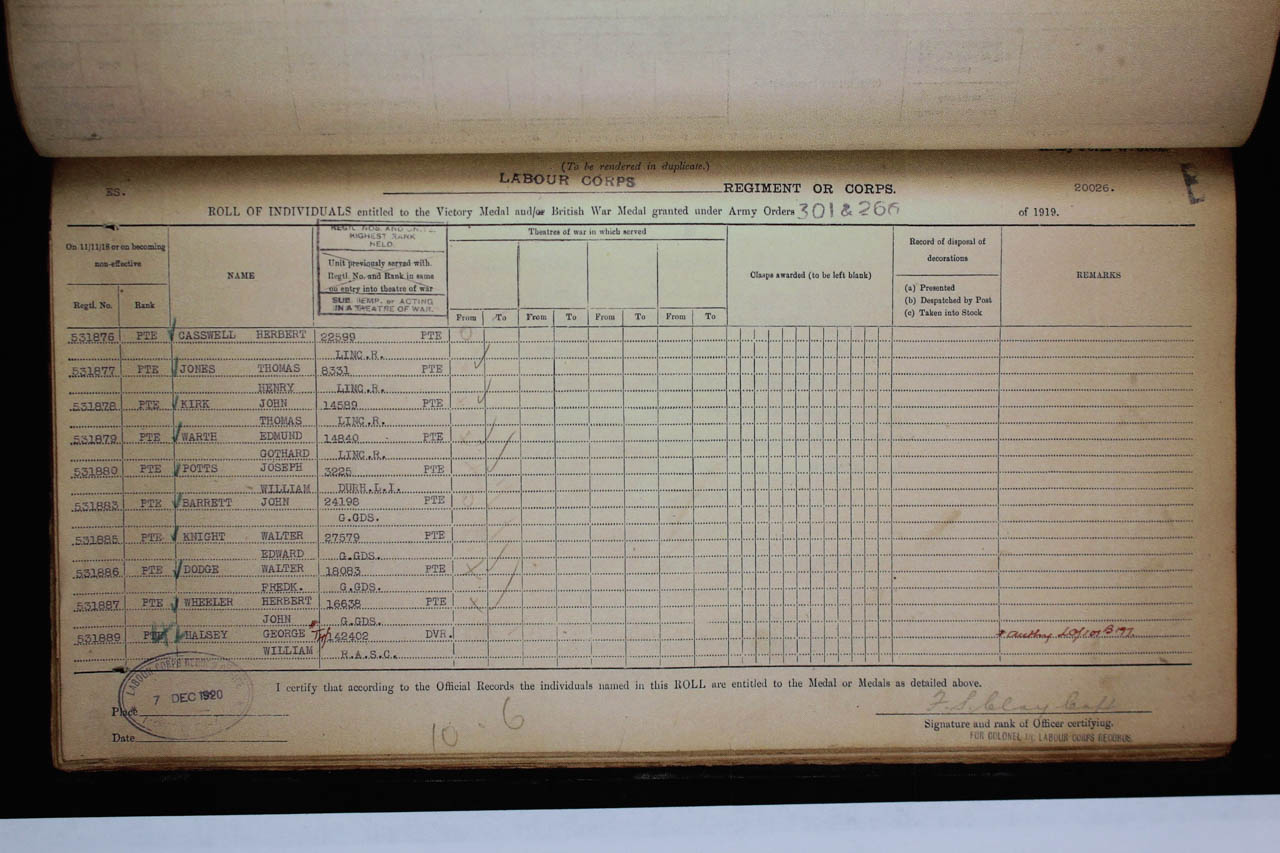 (To be rendered in duplicate.)
LABOUR CORPS REGIMENT OR CORPS.
ES. 20026.
ROLL OF INDIVIDUALS entitled to the Victory Medal and/or British War Medal granted under Army Orders 301 & 266 of 1919.
On 11/11/18 or on becoming non-effective
Regtl. No. Rank
NAME
REGTL. NOS. AND UNIT
HIGHEST RANK
HELD.
Unit previously served with.
Regtl. No. and Rank in same
on entry into theatre of war
SUB. TEMP. or ACTING
IN A THEATRE OF WAR.
Theatres of war in which served
From To From To From To From To
Clasps awarded (to be left blank)
Record of disposal of
decorations
(a) Presented
(b) Despatched by Post
(c) Taken into Stock
REMARKS
531876 PTE CASSWELL HERBERT 22599 PTE
LINC.R.
531877 PTE JONES THOMAS 8331 PTE
HENRY LINC.R.
531878 PTE KIRK JOHN 14589 PTE
THOMAS LINC.R.
531879 PTE WARTH EDMUND 14840 PTE
GOTHARD LINC.R.
531880 PTE POTTS JOSEPH 3225 PTE
WILLIAM DURH.L.I.
531883 PTE BARRETT JOHN 24198 PTE
G.GDS.
531885 PTE KNIGHT WALTER 27579 PTE
EDWARD G.GDS.
531886 PTE DODGE WALTER 18083 PTE
FREDK. G.GDS.
531887 PTE WHEELER HERBERT 16638 PTE
JOHN G.GDS.
531889 PTE HALSEY GEORGE 142402 DVR.
WILLIAM R.A.S.C.
I certify that according to the Official Records the individuals named in this ROLL are entitled to the Medal or Medals as detailed above.
LABOUR CORPS RECORD
7 DEC 1920
Place
Date
10 . 6
Signature and rank of Officer certifying.
FOR COLONEL I/C LABOUR CORPS RECORDS.